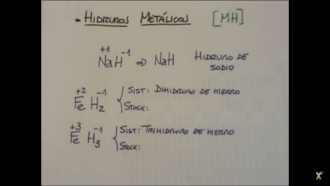 • HIDRUROS METÁLICOS [MH]
+1 -1
NaH ⇒ NaH HIDRURO DE SODIO
+2 -1
Fe H2 { SIST: DIHIDRURO DE HIERRO
STOCK:
+3 -1
Fe H3 { SIST: TRIHIDRURO DE HIERRO
STOCK: